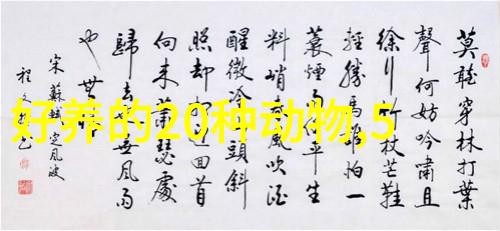 好养的20种动物,5
莫聽穿林打葉
聲何妨吟嘯且
徐行竹杖芒鞋
輕勝馬怕一
蓑煙任平生
料峭風吹酒
醒微冷頭斜
照却迎回首
向來蕭瑟處
歸去也無風雨
也無
宋蘇軾定風波
程